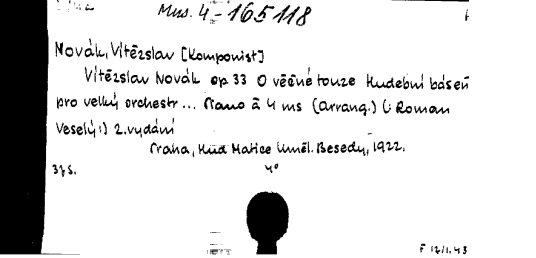 Mus. 4-165118
Novák, Vítězslav [Komponist]
Vítězslav Novák op 33 O věčné touze Hudební báseň
pro velký orchestr... Piano à 4 ms (Arrang.) (: Roman
Veselý:) 2. vydání
Praha, Hud Matice Uměl. Besedy, 1922.
37 S. 4°